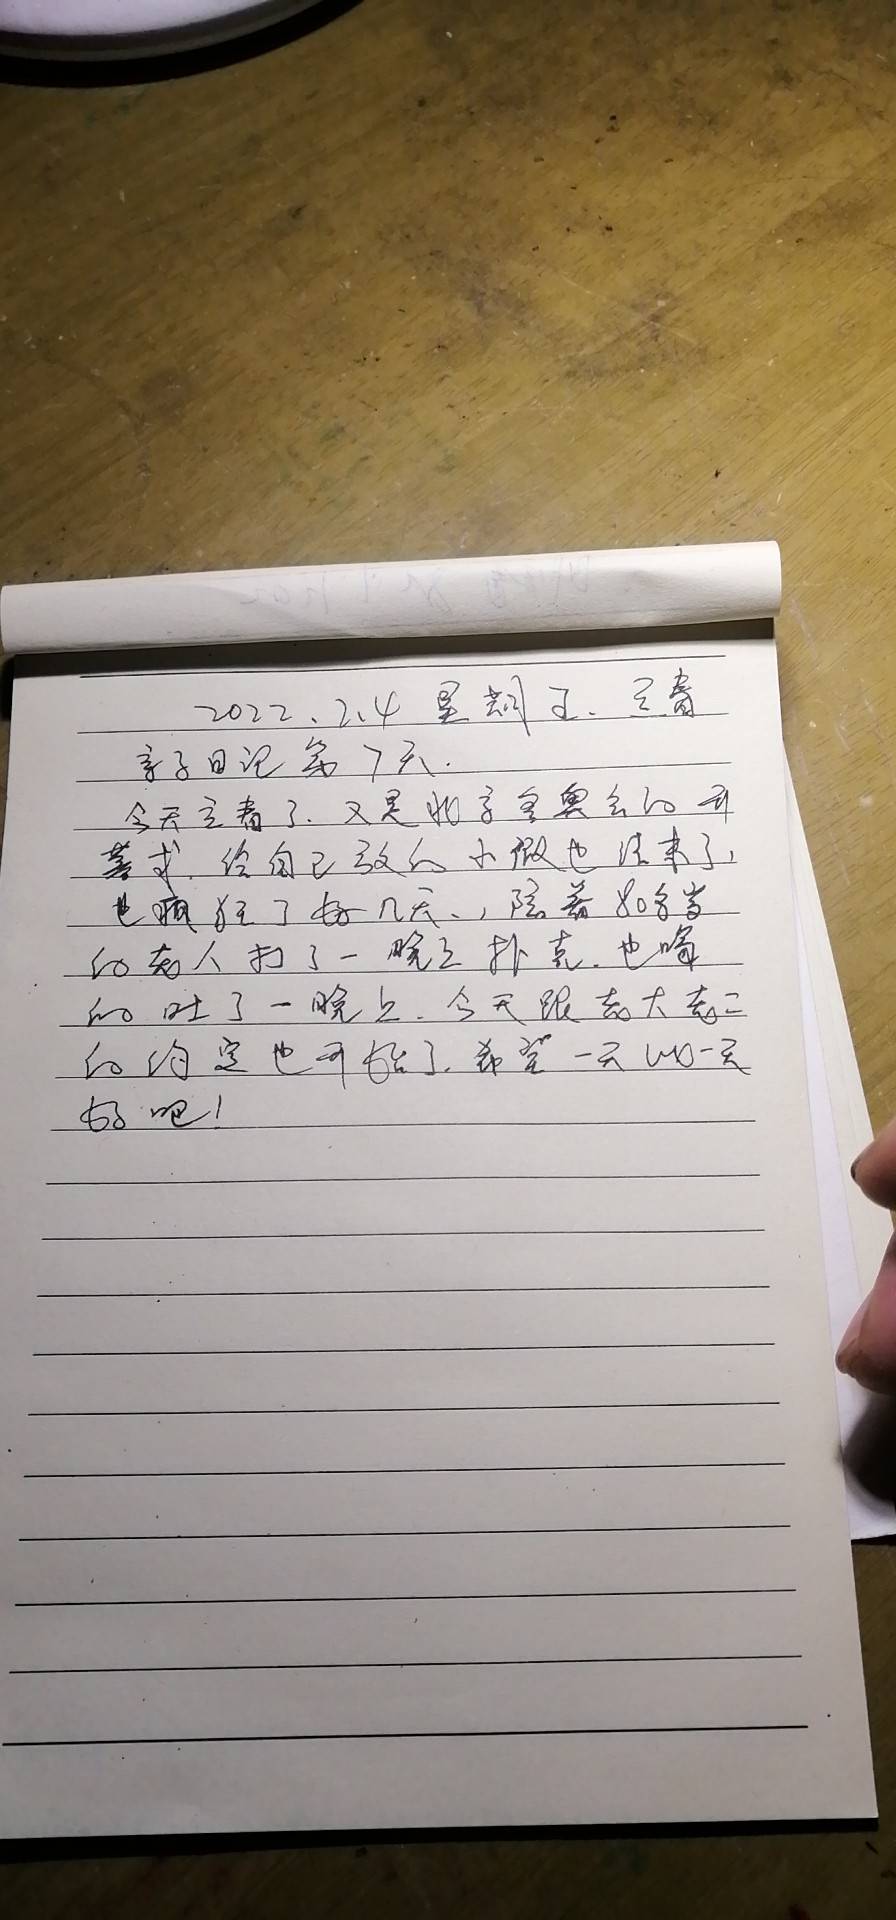 2022.2.4 星期五. 立春
亲子日记第7天.
今天立春了.又是北京冬奥会的开
幕式.给自己放的小假也结束了,
也疯狂了好几天.,陪着80多岁
的老人打了一晚上扑克.也喝
的吐了一晚上.今天跟老大老二
的约定也开始了.希望一天比一天
好吧!